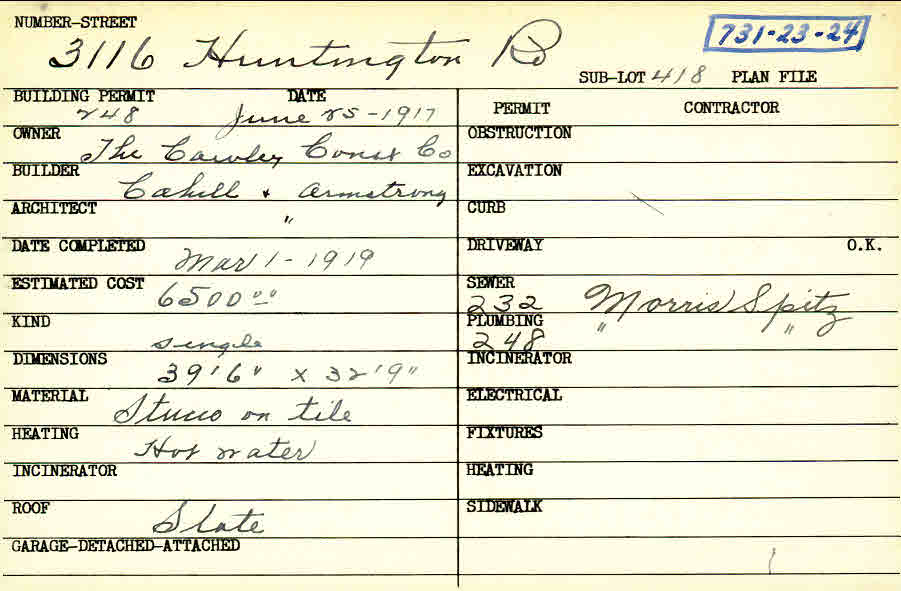 NUMBER-STREET
3116 Huntington Rd
731-23-24
SUB-LOT 418 PLAN FILE
BUILDING PERMIT DATE
248 June 25-1917
OWNER
The Cawley Const Co
BUILDER
Cahill & Armstrong
ARCHITECT
"
DATE COMPLETED
Mar 1-1919
ESTIMATED COST
6500 00
KIND
single
DIMENSIONS
39'6" x 32'9"
MATERIAL
Stucco on tile
HEATING
Hot water
INCINERATOR
ROOF
Slate
GARAGE-DETACHED-ATTACHED
PERMIT CONTRACTOR
OBSTRUCTION
EXCAVATION
CURB
DRIVEWAY O.K.
SEWER
232 Morris Spitz
PLUMBING
248 " "
INCINERATOR
ELECTRICAL
FIXTURES
HEATING
SIDEWALK